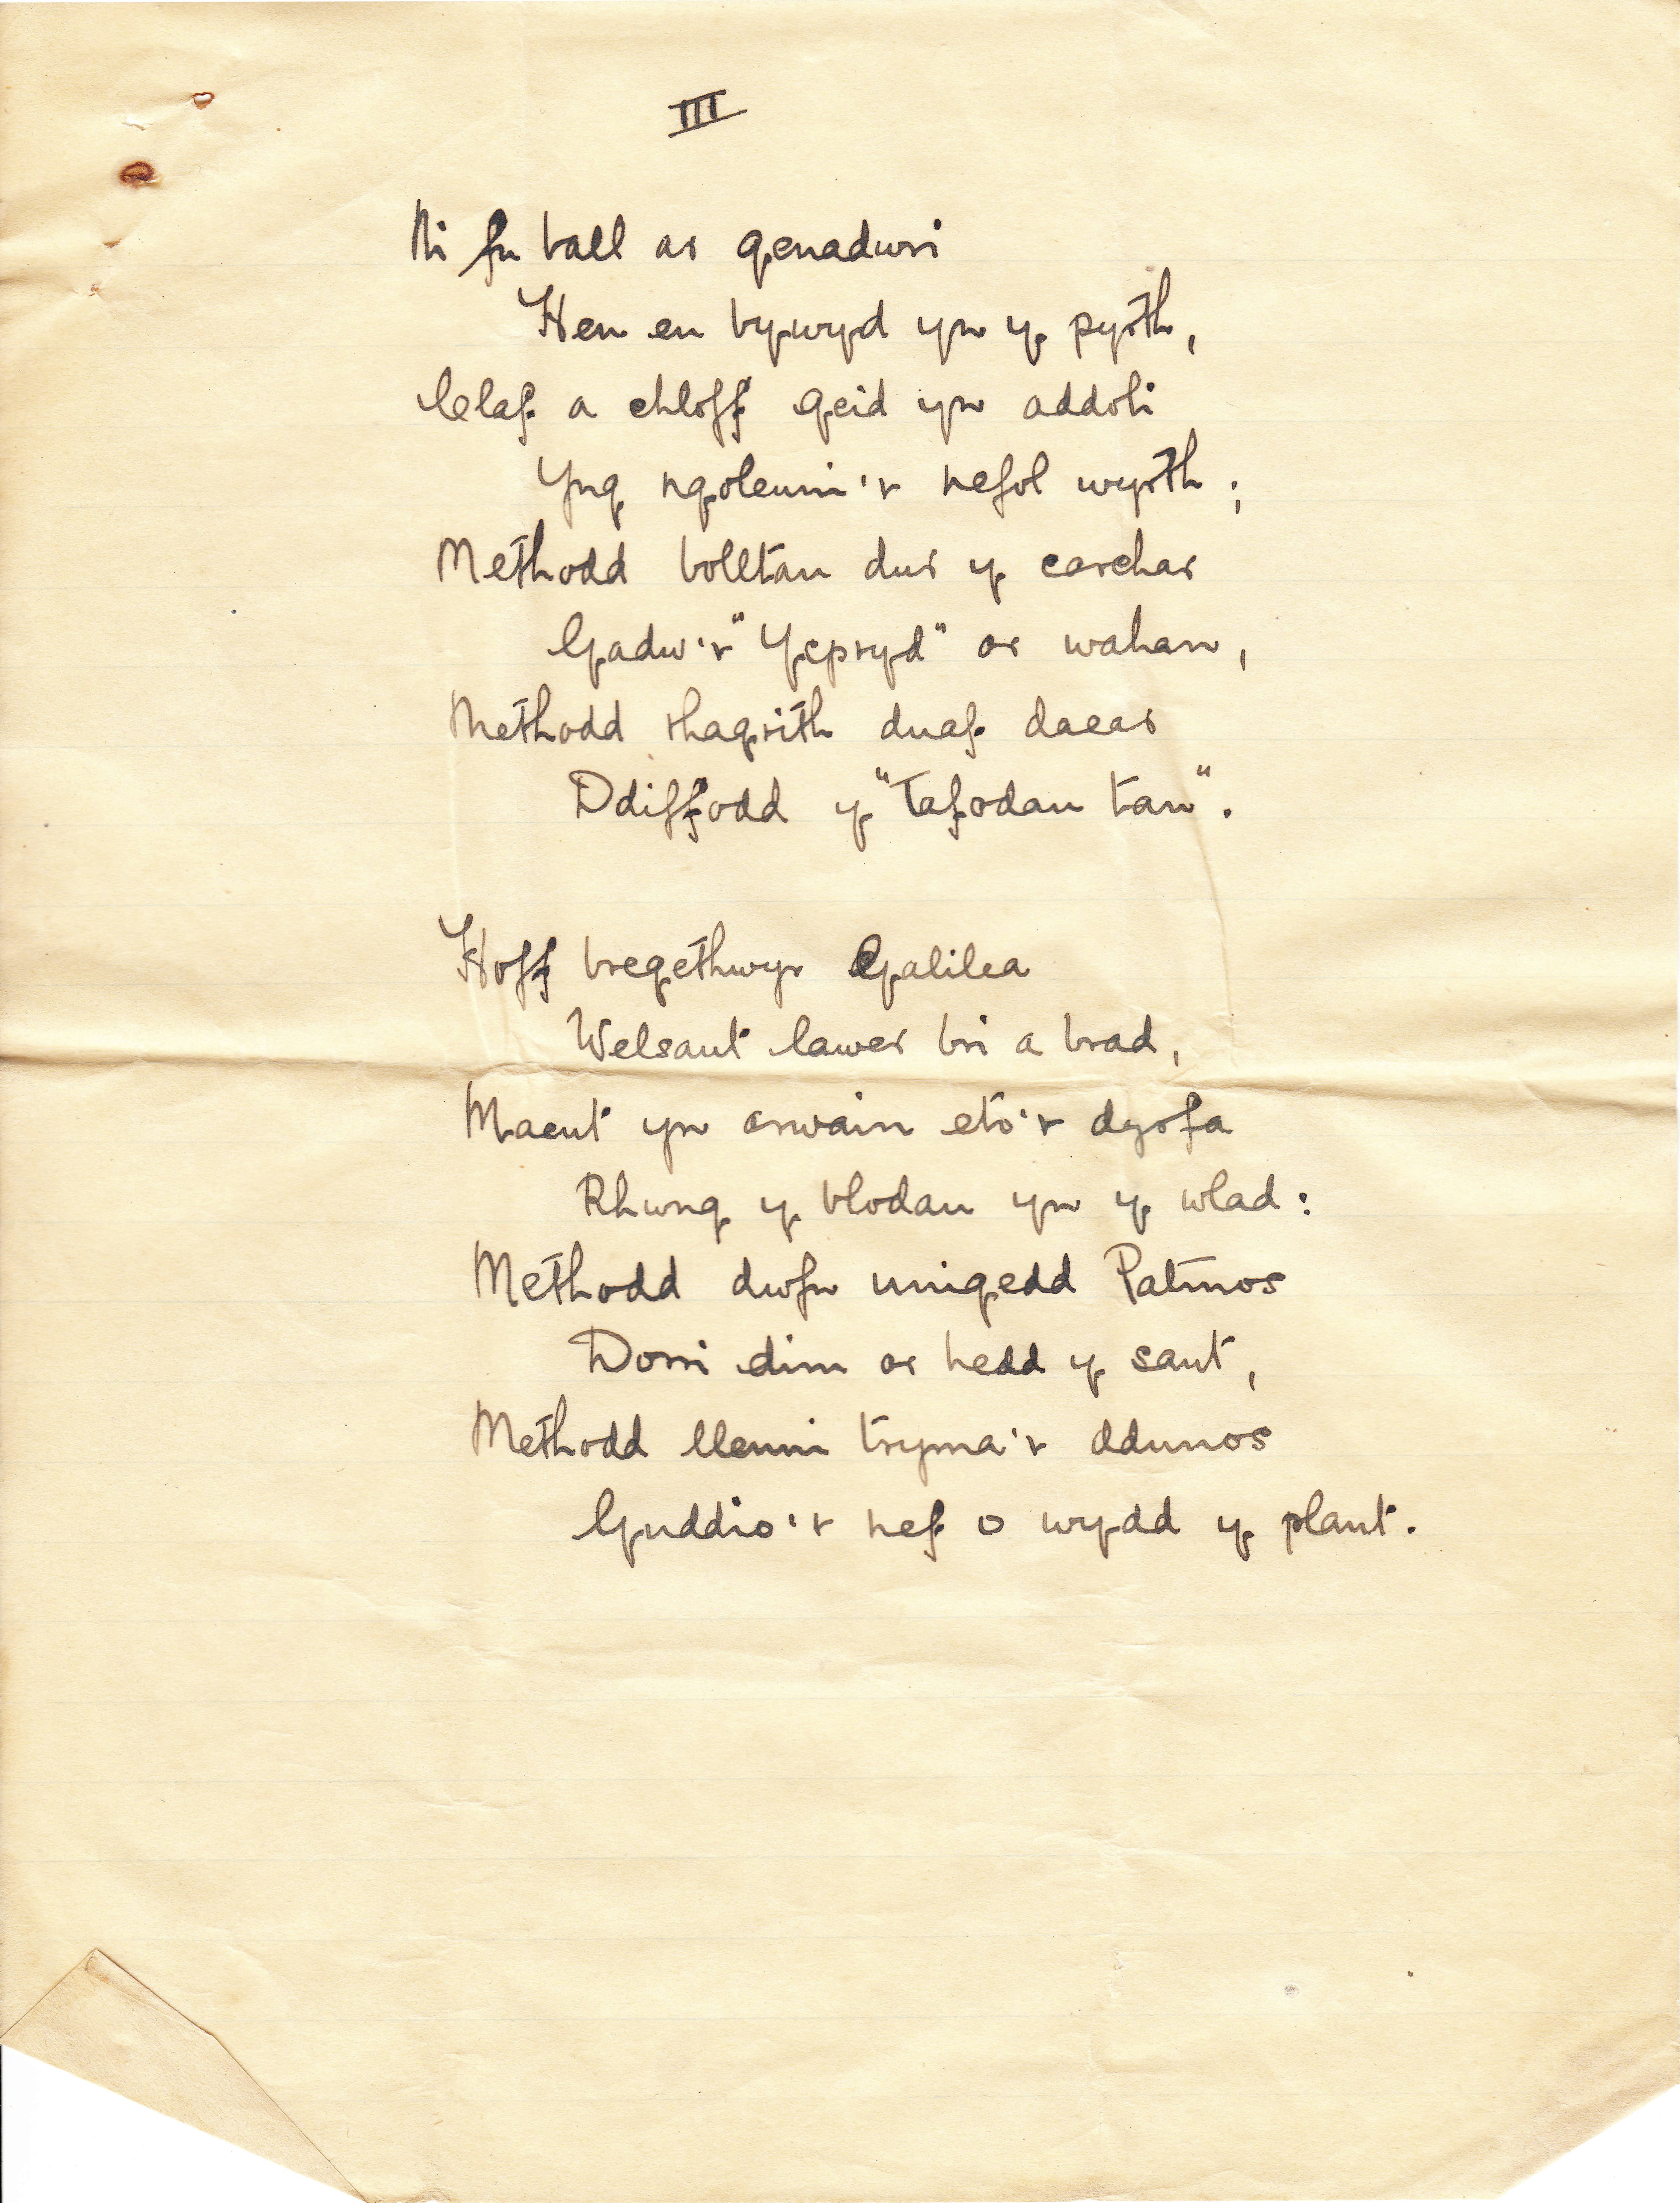 III
Ni fu ball ar genadwri
Hen eu bywyd yn y pyrth,
Claf a chloff geid yn addoli
Yng ngoleuni'r nefol wyrth;
Methodd bolltau dur y carchar
Gadw'r "Yspryd" ar wahan,
Methodd rhagrith duaf daear
Ddiffodd y "Tafodau tan".
Hoff bregethwyr Galilea
Welsant lawer bri a brad,
Maent yn arwain eto'r dyrfa
Rhwng y blodau yn y wlad:
Methodd dwfn unigedd Patmos
Dorri dim ar hedd y sant,
Methodd llenni tryma'r ddunos
Guddio'r nef o wydd y plant.